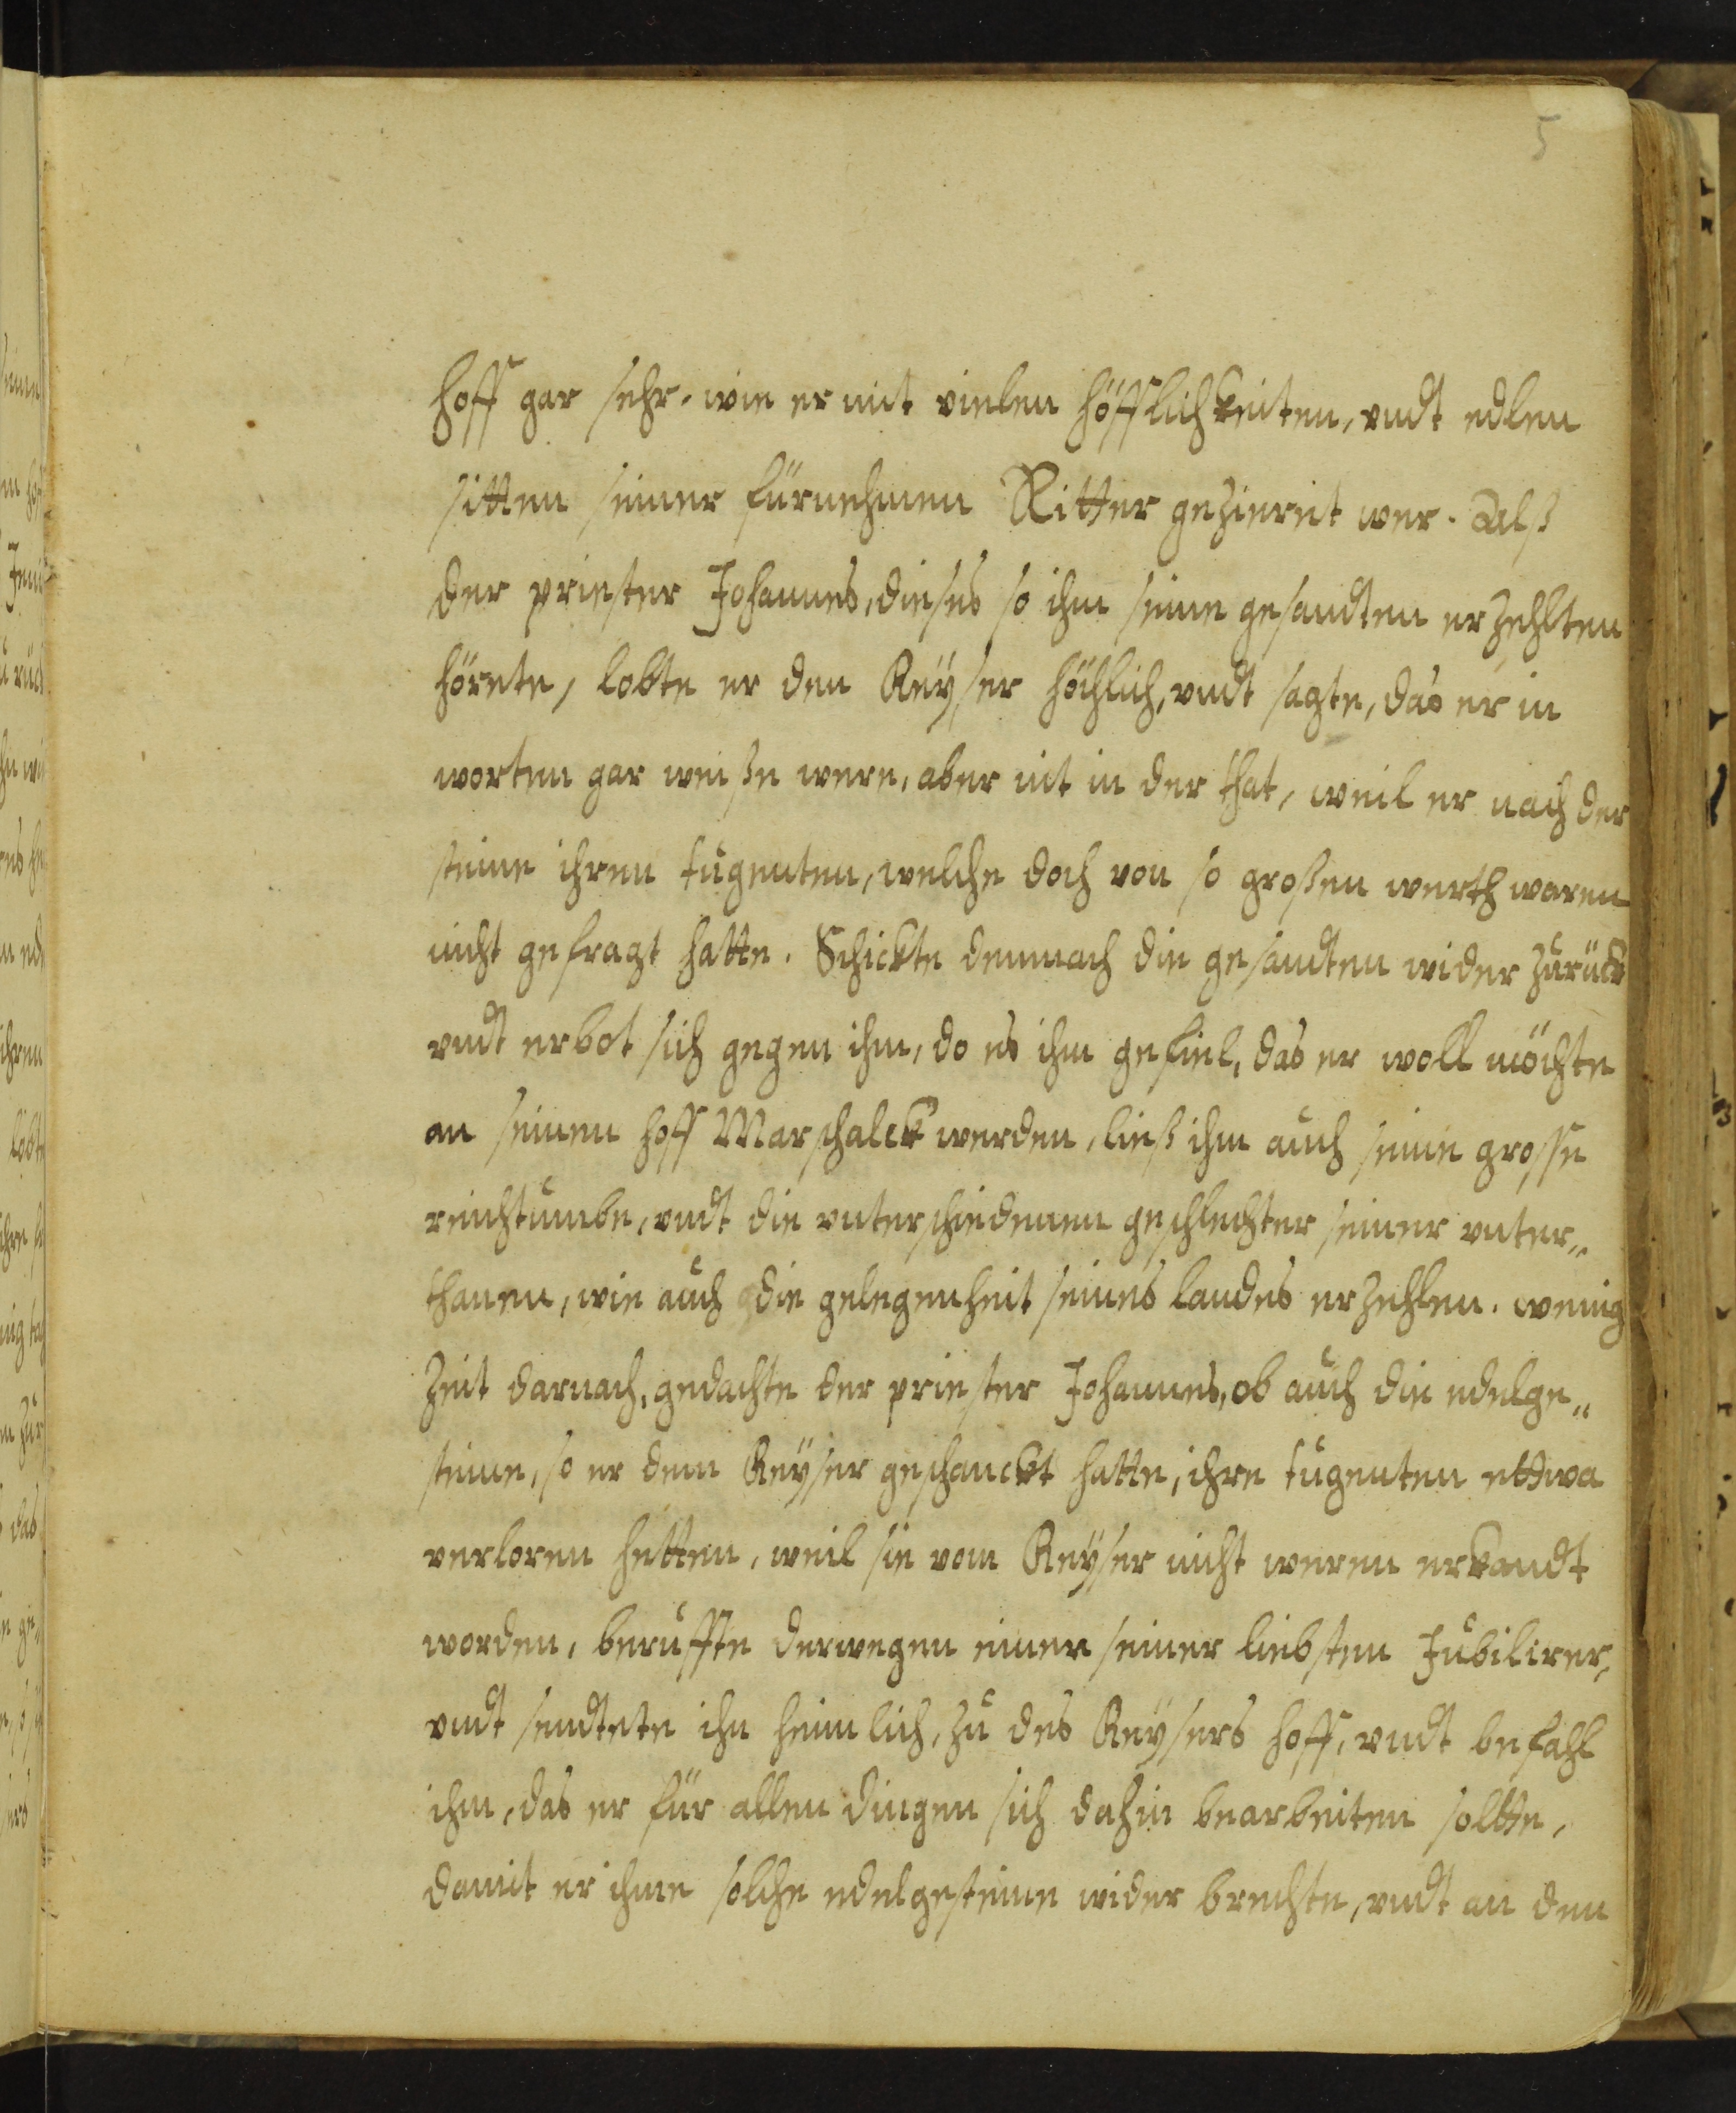 5
hoff gar sehr, wie er mit vielen höfflichkeiten, vndt edlen
sitten seiner fürnehmen Ritter geziereit wer. Alß
der priester Johannes, dieses so ihm seine gesandten erzehlten
hörete, lobte er den Keyser höchlich, vndt sagte, das er in
worten gar weiße were, aber nit in der that, weil er nach der
steine ihren tugenten, welche doch von so großen werth waren
nicht gefragt hatte. Schickte demnach die gesandten wider zurück
vndt erbot sich gegen ihm, do es ihm gefiel, das er woll möchte
an seinen hoff Marschalck werden, ließ ihm auch seine grosse
reichtumbe, vndt die vnterschiedenen geschlechter seiner vnter„
thanen, wie auch die gelegenheit seines landes erzehlen. wenig
Zeit darnach, gedachte der priester Johannes, ob auch die edelge„
steine, so er dem Keyser geschanckt hatte, ihre tugenten ettwa
verloren hetten, weil sie vom Keyser nicht weren erkandt
worden, beruffte derwegen einen seiner liebsten Jubilirer,
vndt sendtete ihn heimlich, zu des Keysers hoff, vndt befahl
ihm, das er für allen dingen sich dahin bearbeiten soltte,
damit er ihme solche edelgesteine wider brechte, vndt an den